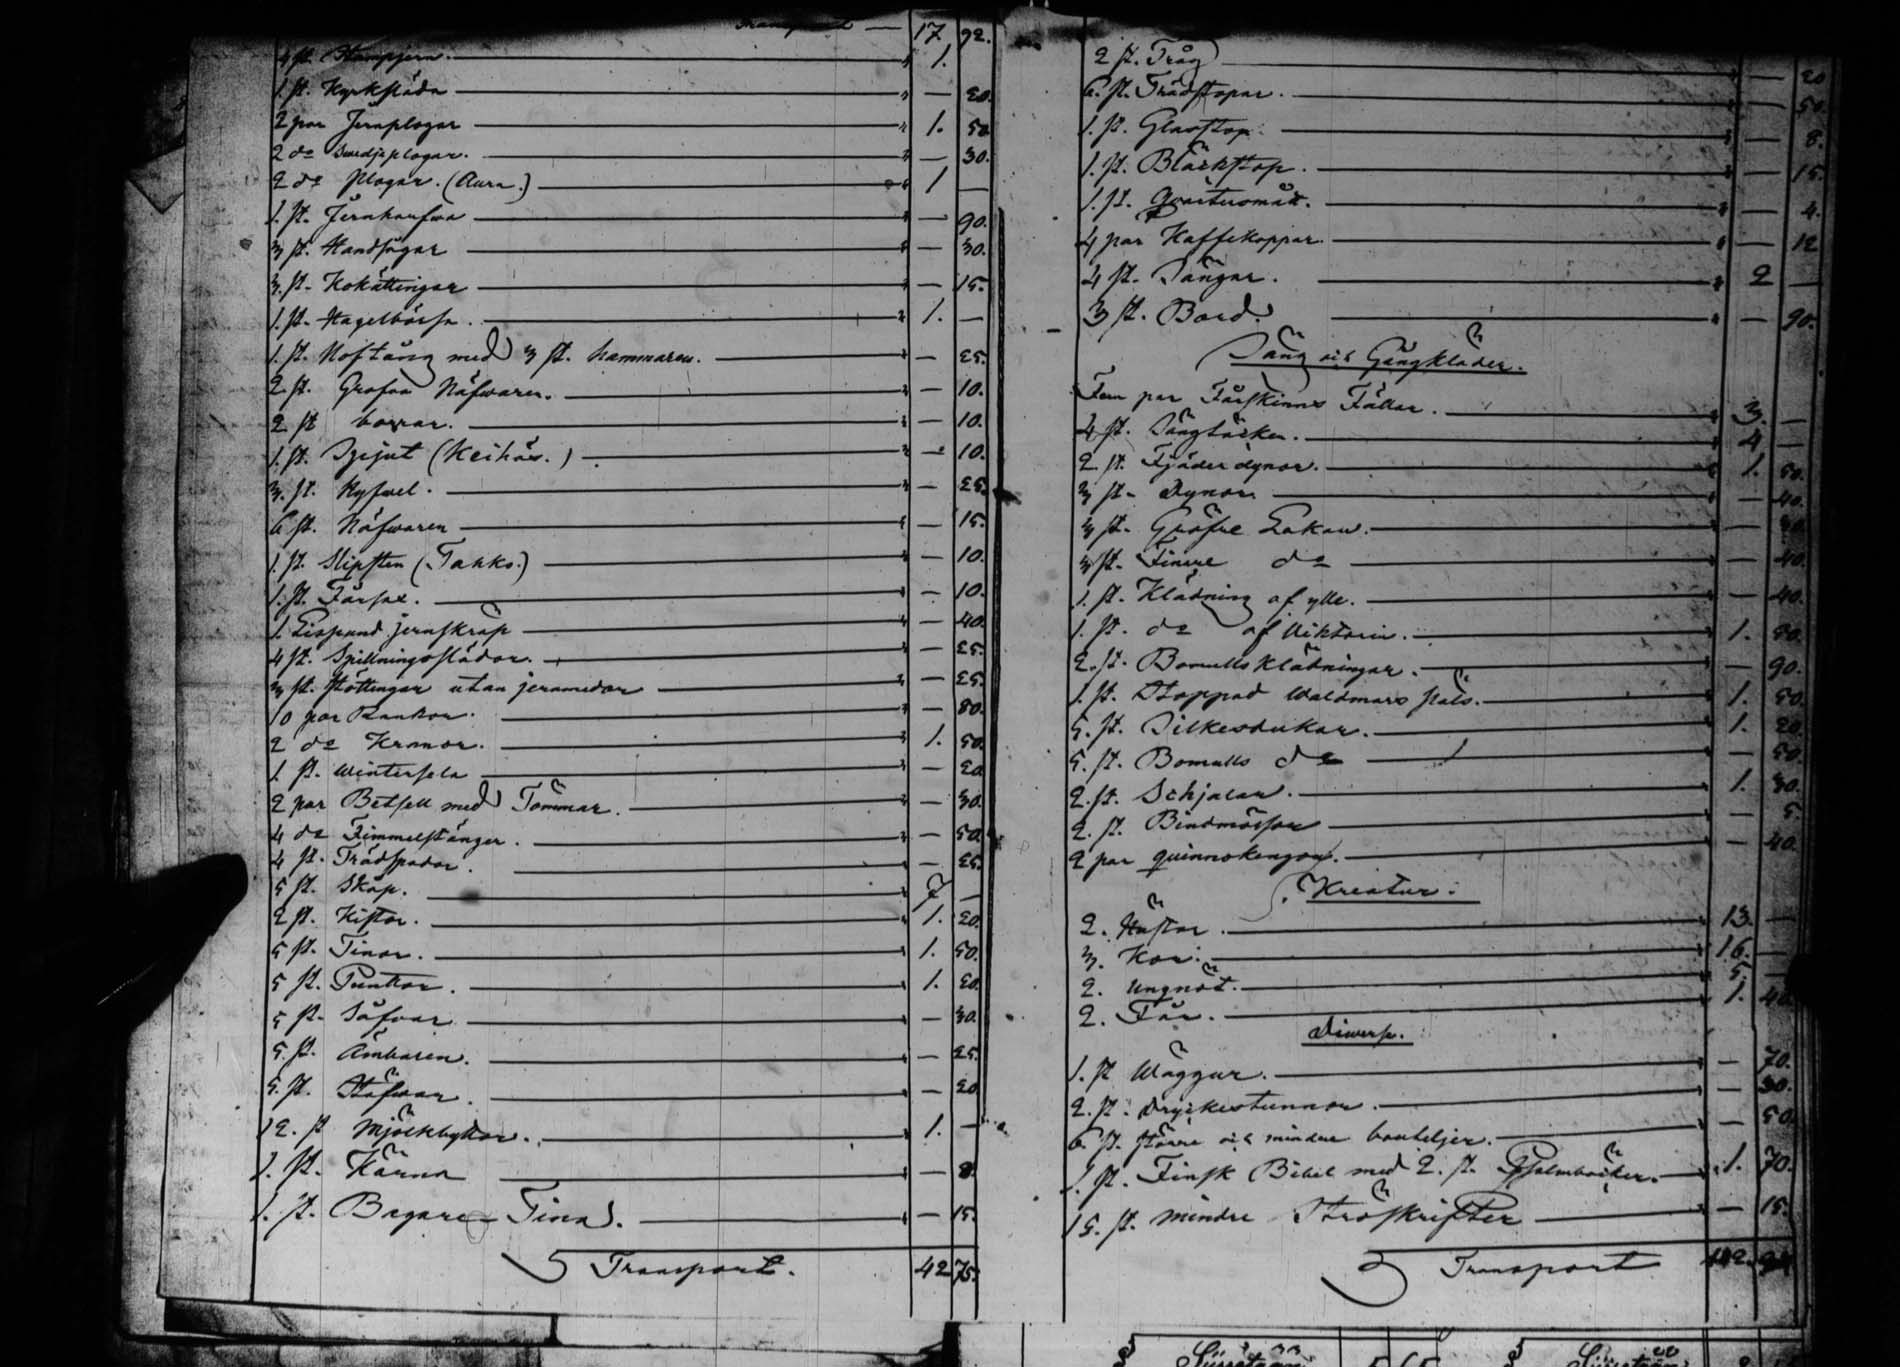 Transport — 17 92.
4 st. Stampjern. — 1.
1. st. Kyrksläda — 20.
2 par Jernplogar — 1. 50
2 do Swedjeplogar. — 30.
2 do plogar. (Aura.) 1 —
1. st. Jernharfwa — 90.
3 st. Handsågar — 30.
3. st. Kokättingar — 15.
1. st. Hagelbössa. 1. —
1. st. Hoftång med 3 st. hammaren. — 25.
2 st. Grofva Näfwaren. — 10.
2 st borrar. — 10.
1. st. Spjut (Keihäs.) — 10.
3. st. Hyfvel. — 25.
6 st. Näfwaren — 15.
1. st. Slipsten (Tahko.) — 10.
1. st. Fårsax. — 10.
1. Lispund jernskrap — 40.
4 st. Spillningsslädor. — 25.
3 st. Stöttingar utan jernmedar — 25.
10 par Rankor. — 80.
2 do Kramor. 1. 50.
1 st. Wintersela — 20
2 par Betsell med Tömmar. — 30.
4 do Fimmelstänger. — 50.
4 st. Trädspadar. — 25.
5 st. Skåp. 7 —
2 st. Kistor. 1. 20.
5 st. Tinor. 1. 50.
5 st. Punttor. 1. 20.
5 st. Såfvar — 30.
5. st. Ämbaren. — 25.
5. st. Stäfwar. — 20
12. st Mjölkbyttor. 1. —
1. st. Kärna — 8.
1. st. Bagare-Tina. — 15.
Transport. 42 75.
2 st. Tråg — 20
6. st. Trädstopar. — 50.
1. st. Glasstop. — 8.
1. st. Bläckstop. — 15.
1. st. Qvartersmått. — 4.
4 par Kaffekoppar. — 12
4 st. Sängar. 2 —
3 st. Bord. — 90.
Säng och Gångkläder.
Fem par Fårskinns Fällar. 3. —
4 st. Sängtäcken. 4 —
2. st. Fjäderdynor. 1. 50.
3 st. Dynor. — 40.
3 st. Gröfre Lakan.
3 st. Finere do — 40.
1. st. Klädning af ylle. — 40.
1. st. do af Viktoria. 1. 20.
2. st. Bomulls klädningar. — 90.
1. st. Stoppad Waldmars päls. 1. 50.
5. st. Silkesdukar. 1. 20.
5. st. Bomulls do — 50.
2. st. Schjalar. 1. 30.
2. st. Bindmössor — 5.
2 par quinnokengor. — 40.
Kreatur.
2. Hästar. 13. —
3. Kor. 16. —
2. Ungnöt. 5. —
2. Får. 1. 40
Diverse.
1. st Wäggur. — 70.
2. st. Dryckestunnor. — 30.
6 st. Större och mindre bouteljer. — 50.
1. st. Finsk Bibel med 2. st. Psalmböcker. 1. 70.
15. st. mindre Ströskrifter — 15.
Transport